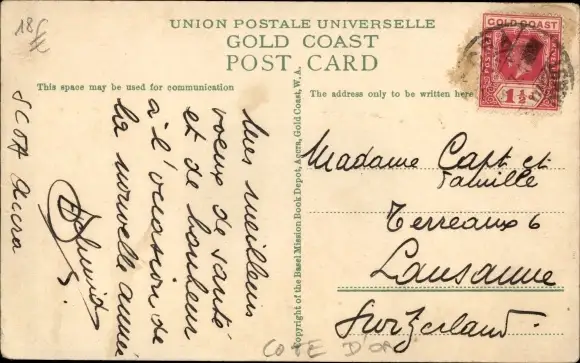 18 CH
UNION POSTALE UNIVERSELLE
GOLD COAST
POST CARD
This space may be used for communication
The address only to be written here
GOLD COAST
POSTAGE
1½
Mes meilleurs
voeux de santé
et de bonheur
à l'occasion de
la nouvelle année
Schmid
SCOA Accra
Copyright of the Basel Mission Book Depot, Accra, Gold Coast, W. A.
Madame Capt et
famille
Terreaux 6
Lausanne
Switzerland.
COTE D'OR